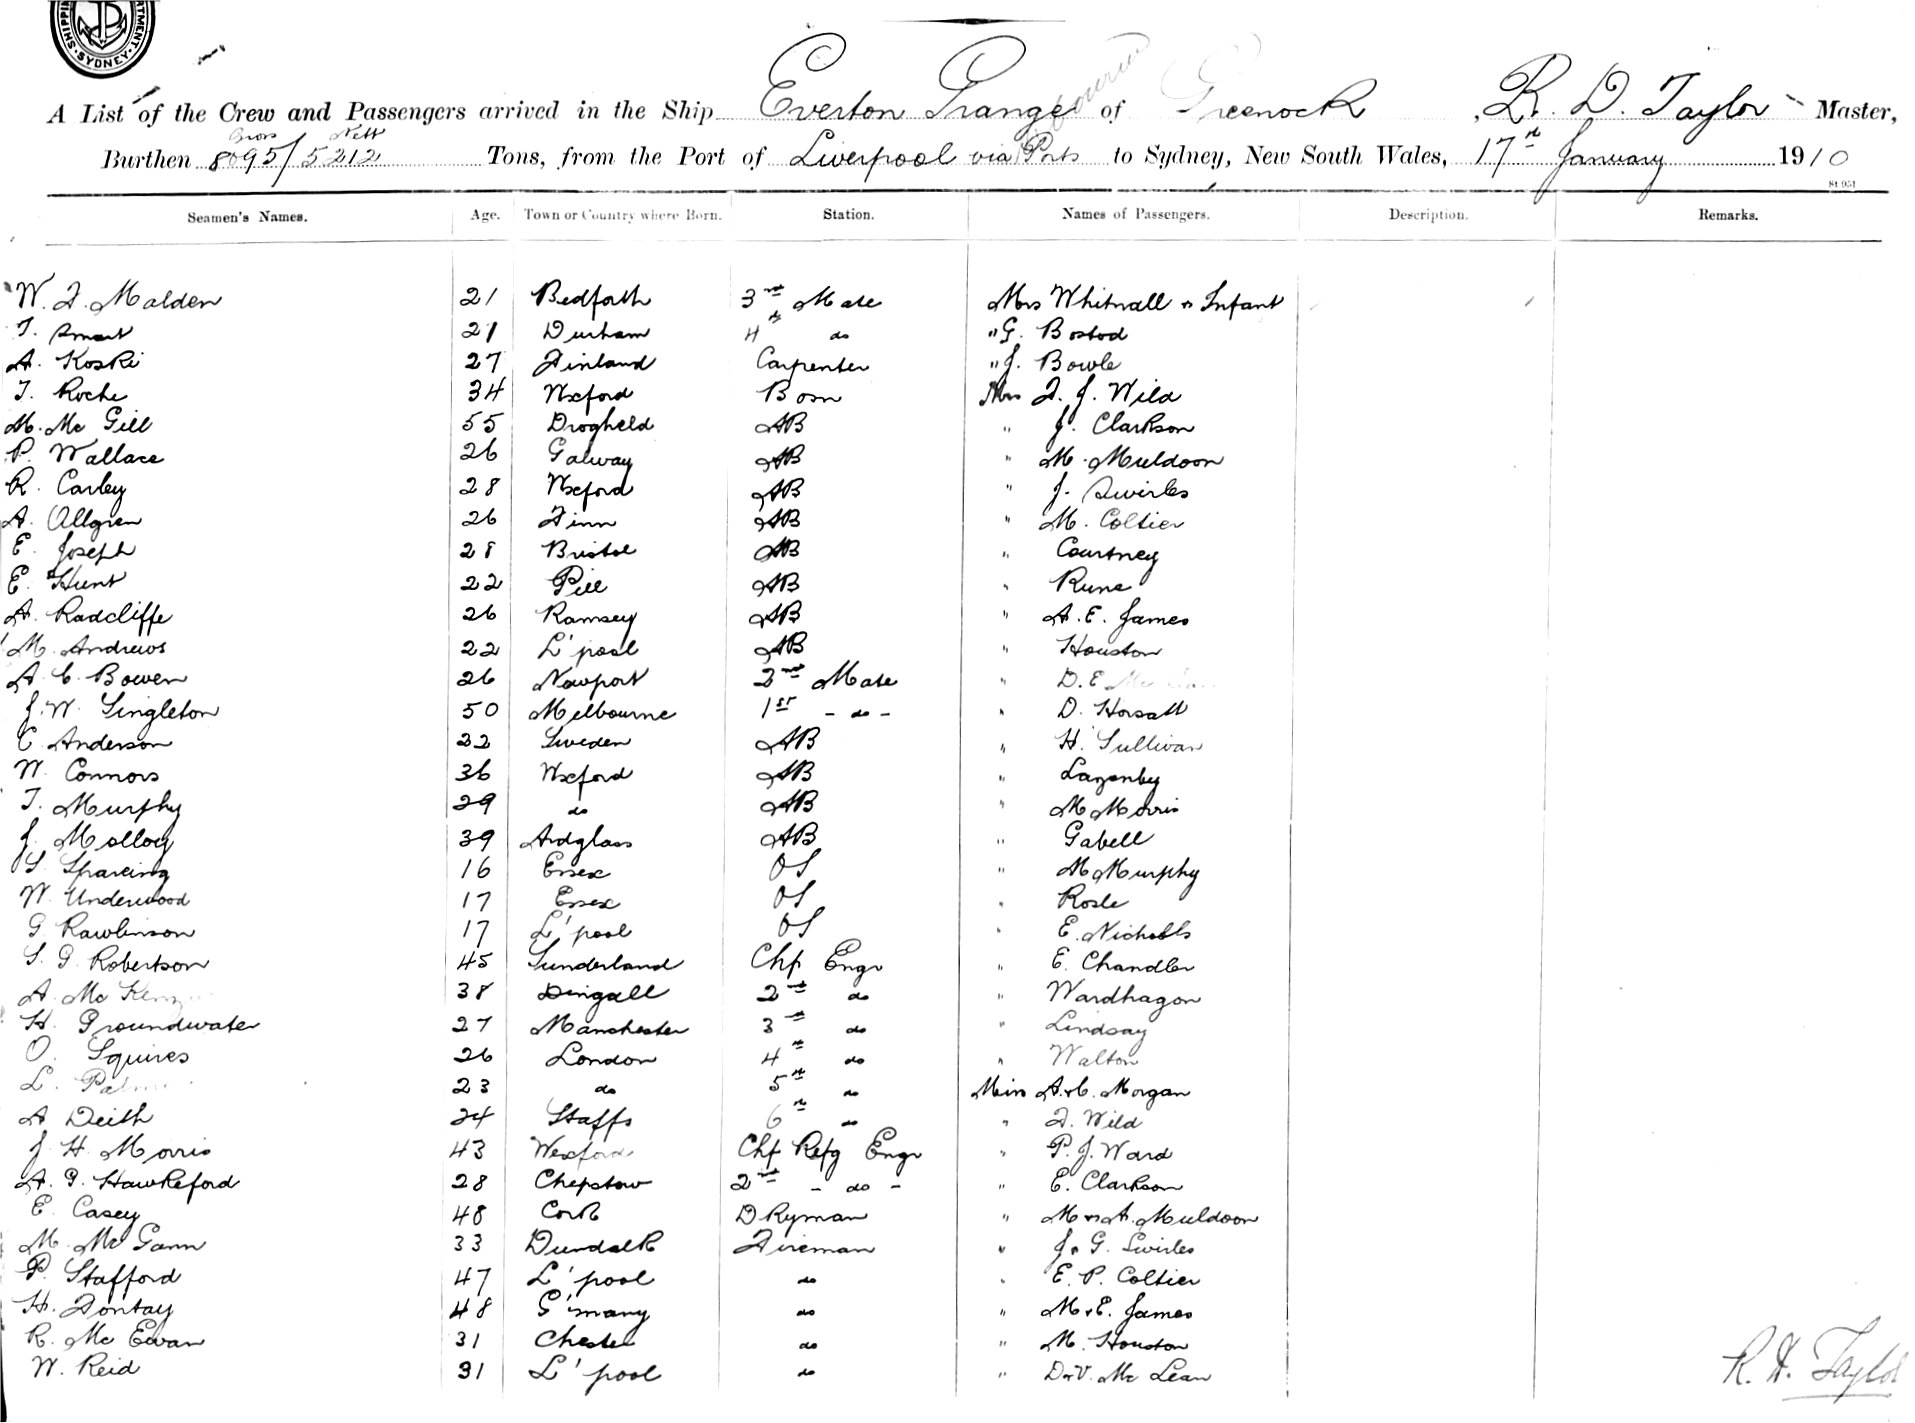 SHIPPING DEPARTMENT SYDNEY
A List of the Crew and Passengers arrived in the Ship Everton Grange of Greenock, R. D. Taylor Master,
Gross Nett
Burthen 8095/5212 Tons, from the Port of Liverpool via Ports to Sydney, New South Wales, 17th January 1910
Seamen's Names. Age. Town or Country where Born. Station. Names of Passengers. Description. Remarks.
W. F. Malden 21 Bedforth 3rd Mate Mrs Whitnall & Infant
T. Smart 21 Durham 4th do " G. Bostod
A. Koski 27 Finland Carpenter " J. Bowle
T. Roche 34 Wxford Bosn Mrs F. J. Wild
M. Mc Gill 55 Drogheld AB " J. Clarkson
P. Wallace 26 Galway AB " M. Muldoon
R. Carley 28 Wxford AB " J. Swirles
A. Allgren 26 Finn AB " M. Coltier
E. Joseph 28 Bristol AB " Courtney
E. Hunt 22 Pill AB " Rune
A. Radcliffe 26 Ramsey AB " A. E. James
M. Andrews 22 L'pool AB " Houston
A. C. Bowen 26 Newport 2nd Mate " D. E Mc
J. W. Singleton 50 Melbourne 1st - do - " D. Horsatt
C. Anderson 22 Sweden AB " H. Sullivan
W. Connors 36 Wxford AB " Lazenby
T. Murphy 29 do AB " M Morris
J. Molloy 39 Ardglass AB " Gabell
S. Sparcing 16 Essex OS " M Murphy
W. Underwood 17 Essex OS " Rosle
G. Rawlinson 17 L'pool OS " E. Nicholls
S. G. Robertson 45 Sunderland Chf Engr " E. Chandler
A. Mc 38 Dingall 2nd do " Wardhagon
H. Groundwater 27 Manchester 3rd do " Lindsay
O. Squires 26 London 4th do " Walton
L. 23 do 5th do Miss A. & C. Morgan
A Deith 24 Staffs 6th do " F. Wild
J. H. Morris 43 Wexford Chf Refg Engr " P. J. Ward
A. G. Hawkeford 28 Chepstow 2nd - do - " E. Clarkson
E. Casey 48 Cork DKyman " M & A. Muldoon
M. McGann 33 Dundalk Fireman " J & G. Swirles
P. Stafford 47 L'pool do " E. P. Coltier
H. Fontay 48 G'many do " M & E. James
R. Mc Ewan 31 Chester do " M. Houston
W. Reid 31 L'pool do " D & V. Mc Lean
R. D. Taylor